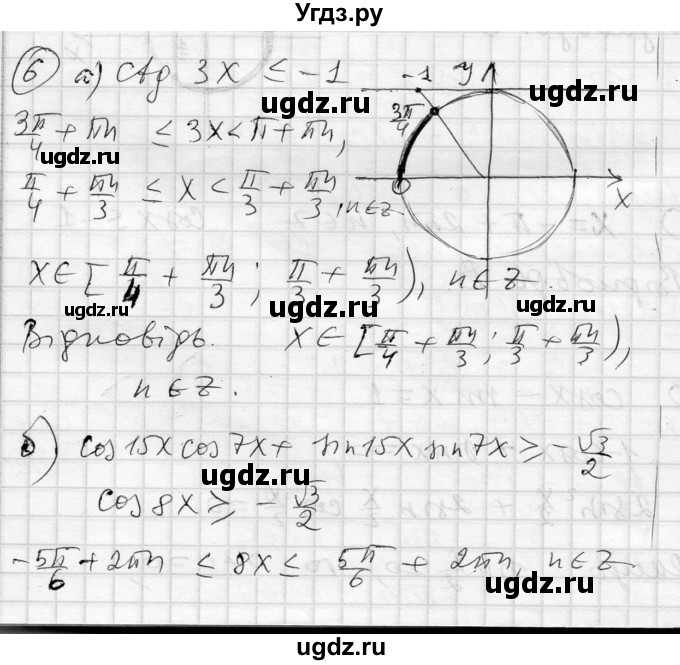 Угдз.ру
6 а) ctg 3x ≤ -1
-1 y
ugdz.ru
ugdz.ru
3π/4 + πn ≤ 3x < π + πn,
3π/4
ugdz.ru
π/4 + πn/3 ≤ x < π/3 + πn/3, n∈Z
x
x∈[π/4 + πn/3; π/3 + πn/3), n∈Z.
ugdz.ru
ugdz.ru
Відповідь. x∈[π/4 + πn/3; π/3 + πn/3),
n∈Z.
ugdz.ru
б) cos15x cos7x + sin15x sin7x ≥ -√3/2
ugdz.ru
cos8x ≥ -√3/2
-5π/6 + 2πn ≤ 8x ≤ 5π/6 + 2πn, n∈Z
ugdz.ru
ugdz.ru
ugdz.ru